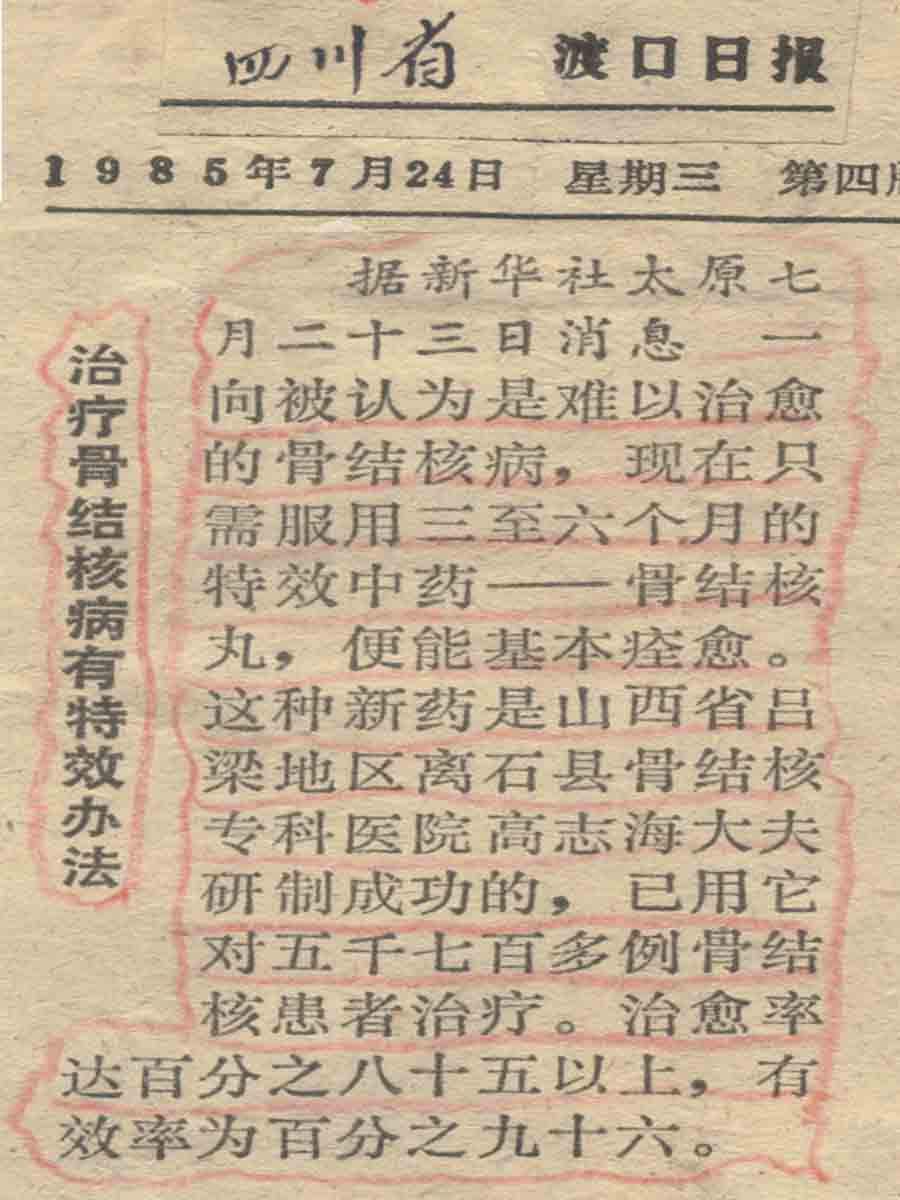 四川省 渡口日报
1985年7月24日 星期三 第四版
治疗骨结核病有特效办法
据新华社太原七
月二十三日消息 一
向被认为是难以治愈
的骨结核病，现在只
需服用三至六个月的
特效中药——骨结核
丸，便能基本痊愈。
这种新药是山西省吕
梁地区离石县骨结核
专科医院高志海大夫
研制成功的，已用它
对五千七百多例骨结
核患者治疗。治愈率
达百分之八十五以上，有
效率为百分之九十六。